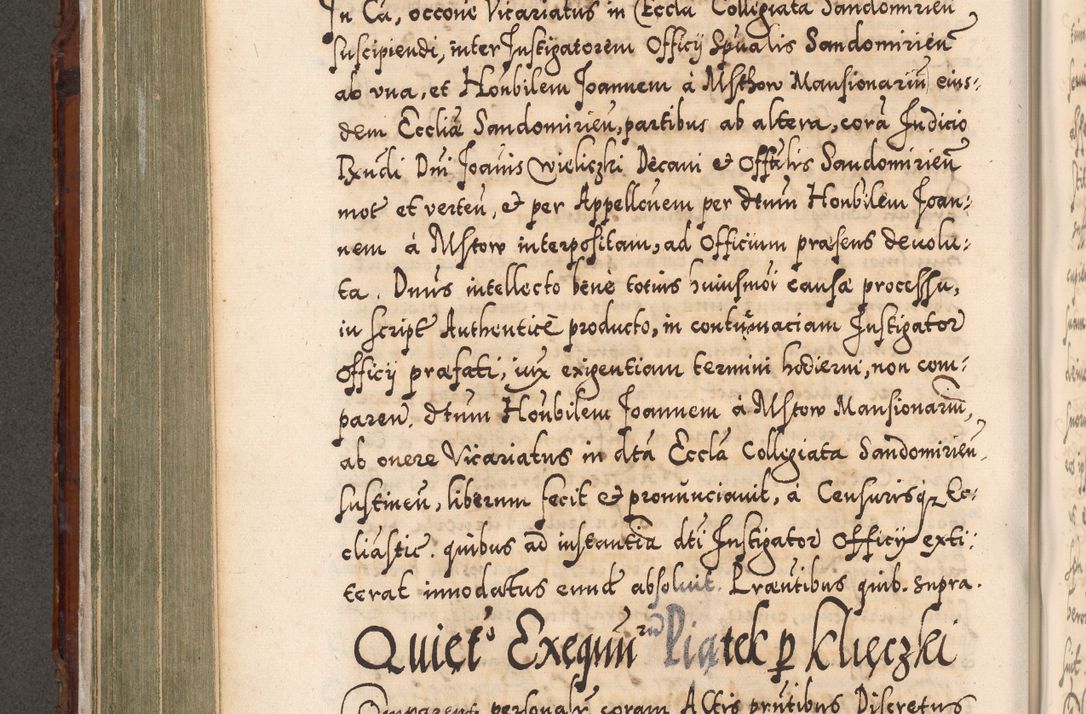 In Ca, occone Vicariatus in Eccla Collegiata Sandomirien
suscipiendi, inter Instigatorem Officij Spualis Sandomirien
ab vna, et Honbilem Joannem à Msthow Mansionariu eius:
dem Eccliæ Sandomirien, partibus ab altera, corā Judicio
Rxndi Dni Joānis Wieliczki Decani & Offālis Sandomirien
mot et verten, & per Appellcuem per dtum Honbilem Joan:
nem à Mstow interpositam, ad Officium præsens deuolu:
ta. Dnūs intellecto bene totius huiusmoi causæ processu,
in script Authenticē producto, in contumaciam Instigator
Officij præfati, iux exigentiam termini hodierni, non com:
paren, dtum Honbilem Joannem à Mstow Mansionariū,
ab onere Vicariatus in dtā Ecclā Collegiata Sandomirien
sustinen, liberum fecit & pronunciauit, a Censurisq Ec:
cliastic. quibus ad instantiā dti Instigator Officij exti:
terat innodatus eund absoluit. Præntibus quib. supra.
Quiet Exequun Piątek p Kłięczki
Comparens personalr coram Actis pntibus Discretus